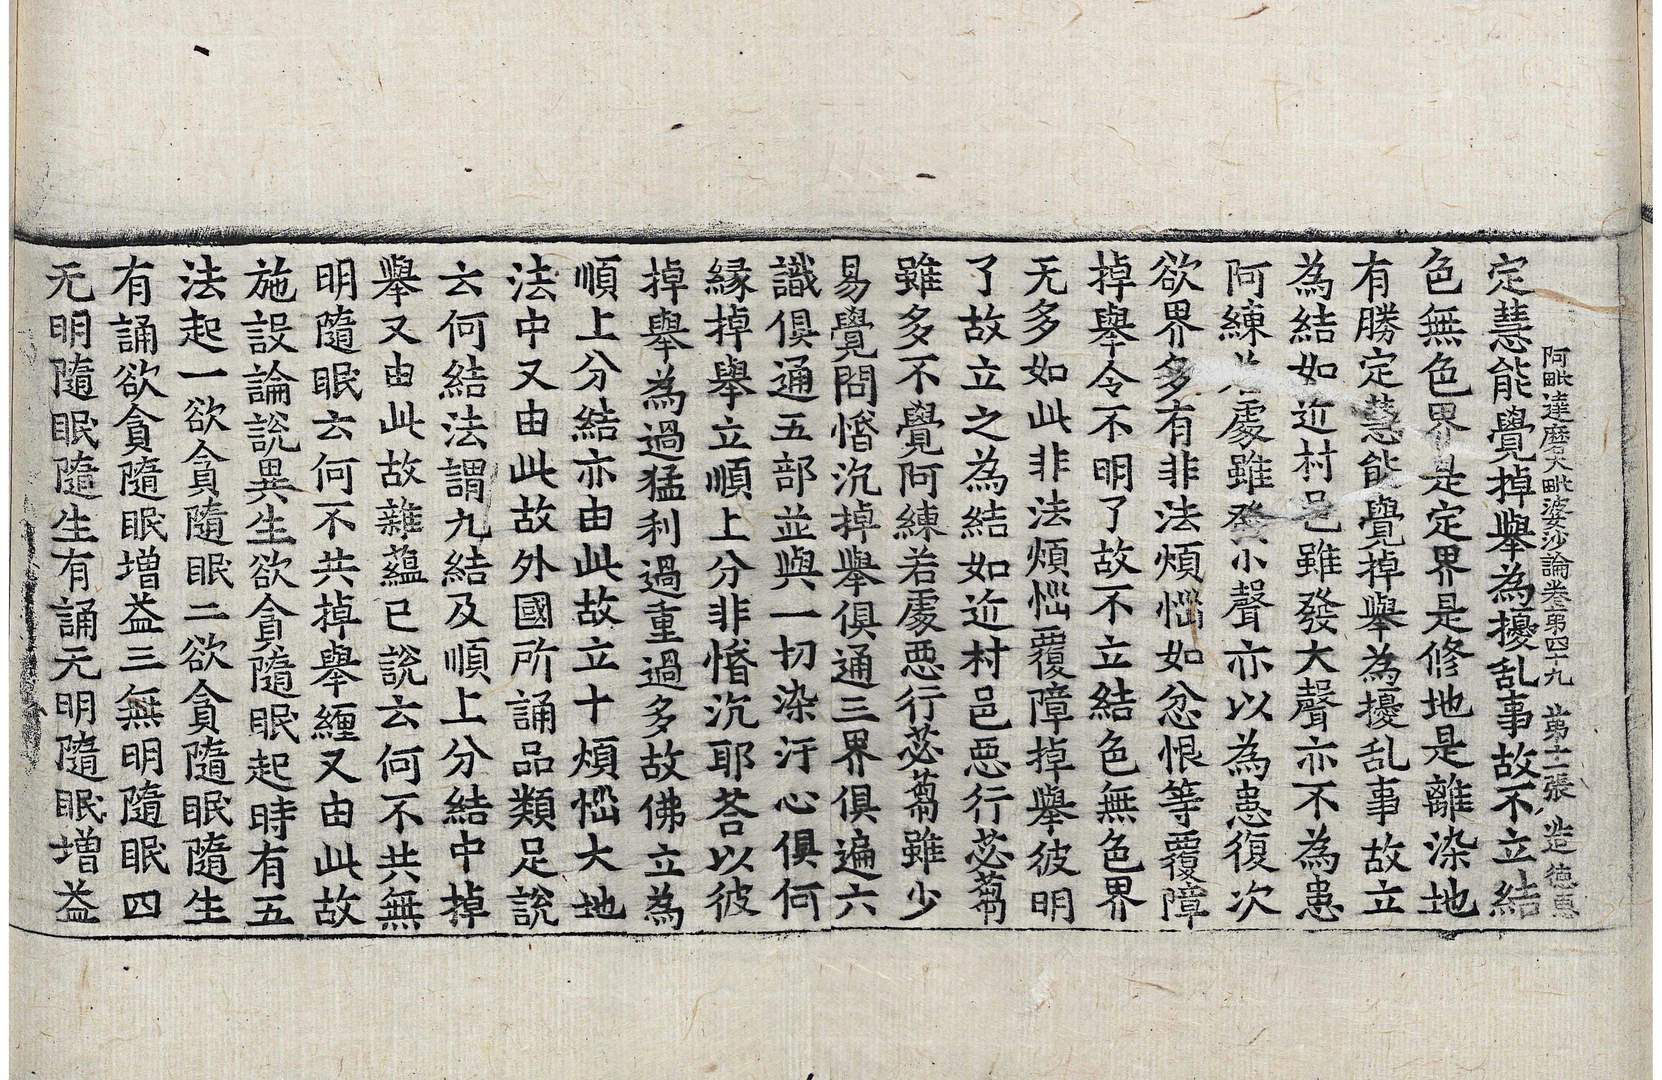 阿毗達磨大毗婆沙論卷第四十九 第十二張 造 德惠
定慧能覺掉舉為擾乱事故不立結
色無色界是定界是修地是離染地
有勝定慧能覺掉舉為擾乱事故立
為結如近村邑雖發大聲亦不為恚
阿練若處雖發小聲亦以為恚復次
欲界多有非法煩惱如忿恨等覆障
掉舉令不明了故不立結色無色界
无多如此非法煩惱覆障掉舉彼明
了故立之為結如近村邑惡行苾蒭
雖多不覺阿練若處惡行苾蒭雖少
易覺問惛沉掉舉俱通三界俱遍六
識俱通五部並與一切染汙心俱何
緣掉舉立順上分非惛沉耶荅以彼
掉舉為過猛利過重過多故佛立為
順上分結亦由此故立十煩惱大地
法中又由此故外國所誦品類足說
云何結法謂九結及順上分結中掉
舉又由此故雜蘊已說云何不共無
明隨眠云何不共掉舉纏又由此故
施設論說異生欲貪隨眠起時有五
法起一欲貪隨眠二欲貪隨眠隨生
有誦欲貪隨眠增益三無明隨眠四
无明隨眠隨生有誦无明隨眠增益